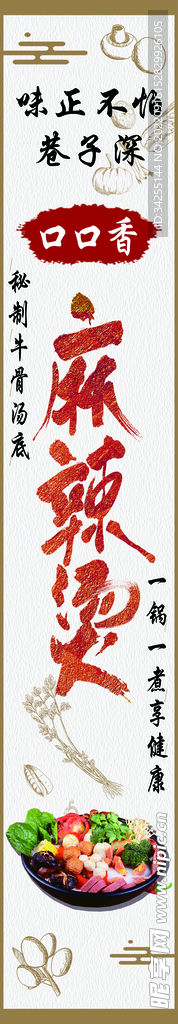 味正不怕
巷子深
口口香
秘制牛骨汤底
麻辣烫
一锅一煮享健康
昵享网 www.nipic.cn